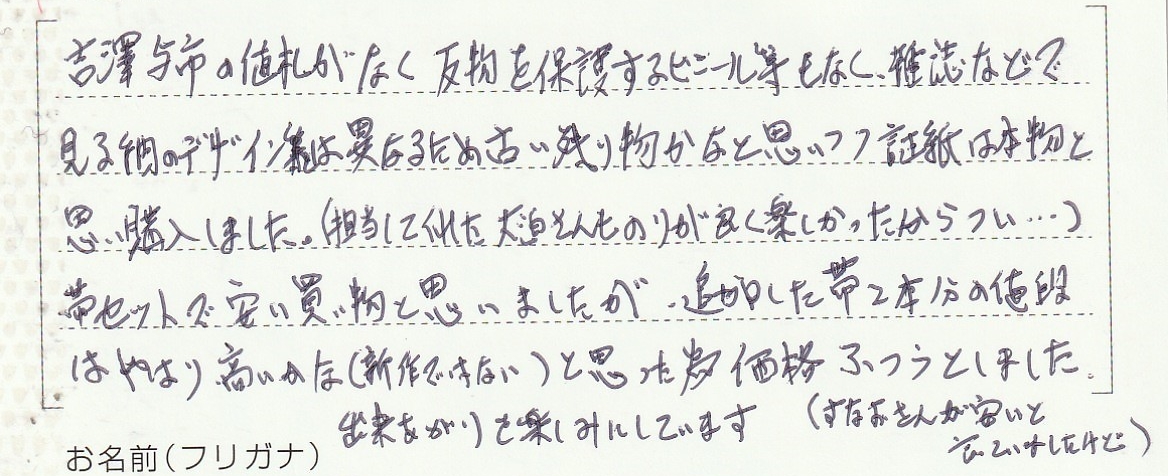 吉澤与市の値札がなく反物を保護するビニール等もなく、雑誌などで
見る柄のデザイン等は異なるため古い残り物かなと思いつつ証紙は本物と
思い購入しました。(担当して似た大迫さんものりが良く楽しかったからつい…)
帯セットで安い買い物と思いましたが、追加した帯2本分の値段
はやはり高いかな(新作ではない)と思った為価格ふつうとしました。
出来あがりを楽しみにしています (すなおさんが安いと
言っていましたけど)
お名前(フリガナ)